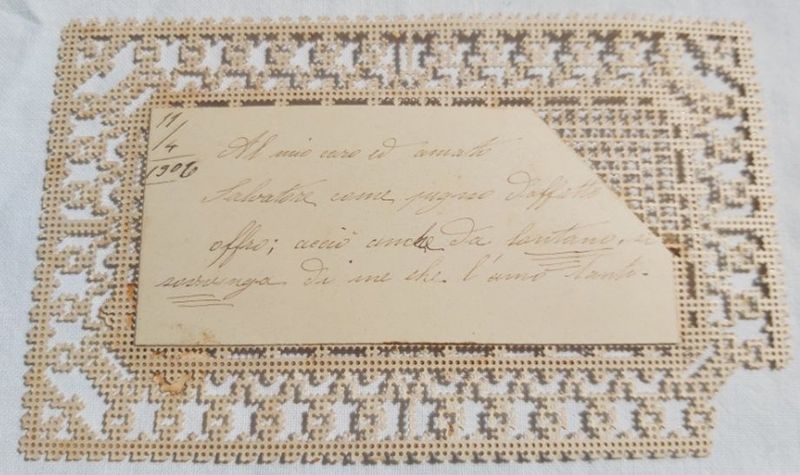 11/4
1906
Al mio caro ed amato
Salvatore come pegno d'affetto
offro; acciò anche da lontano, si
sovvenga di me che l'amo tanto.